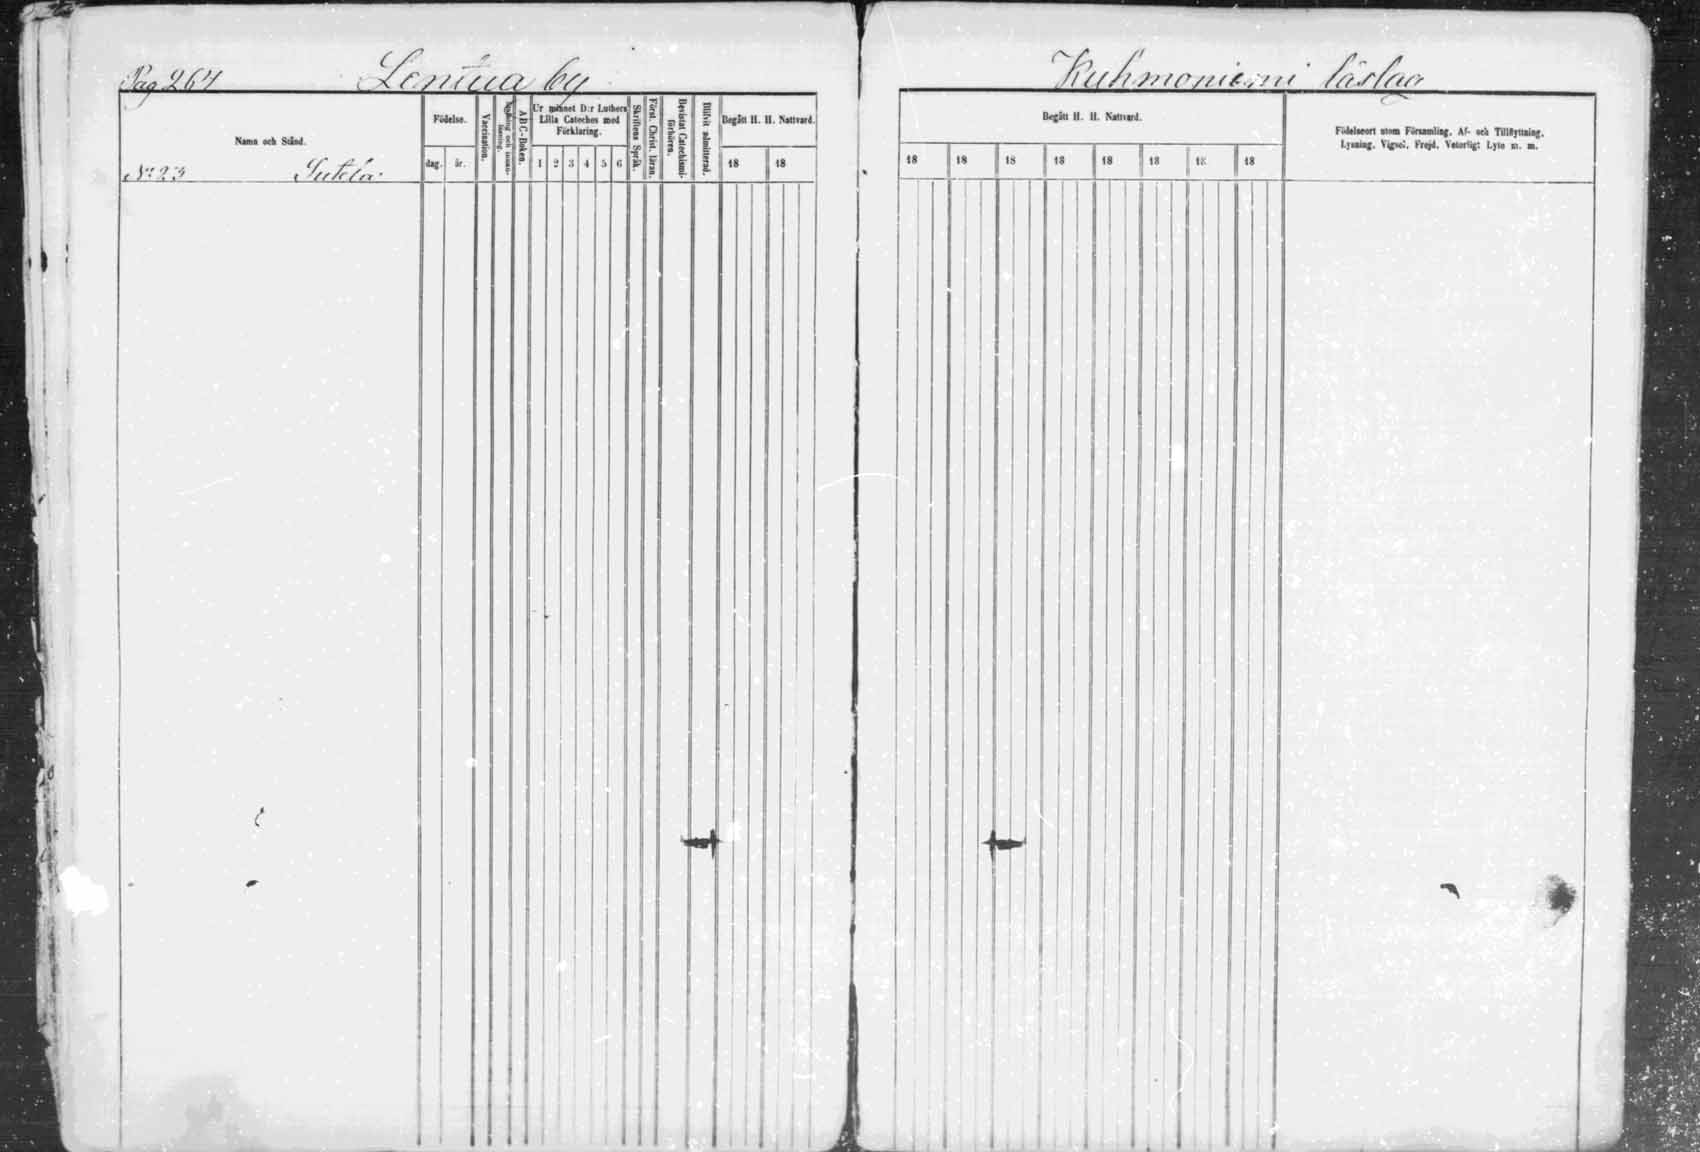 Pag 264 Lentua by
Namn och Stånd.
Födelse.
dag. år.
Vaccination.
ABC-Boken.
Ur minnet D:r Luthers
Lilla Cateches med
Förklaring.
1 2 3 4 5 6
Skriftens Språk.
Först. Christ. läran.
Bevistat Catechismi-
förhören.
Blifvit admitterad.
Begått H. H. Nattvard.
18 18
N:o 23
Kuhmoniemi läslag
Begått H. H. Nattvard.
18 18 18 18 18 18 18 18
Födelseort utom Församling. Af- och Tillflyttning.
Lysning. Vigsel. Frejd. Veterligt Lyte m. m.